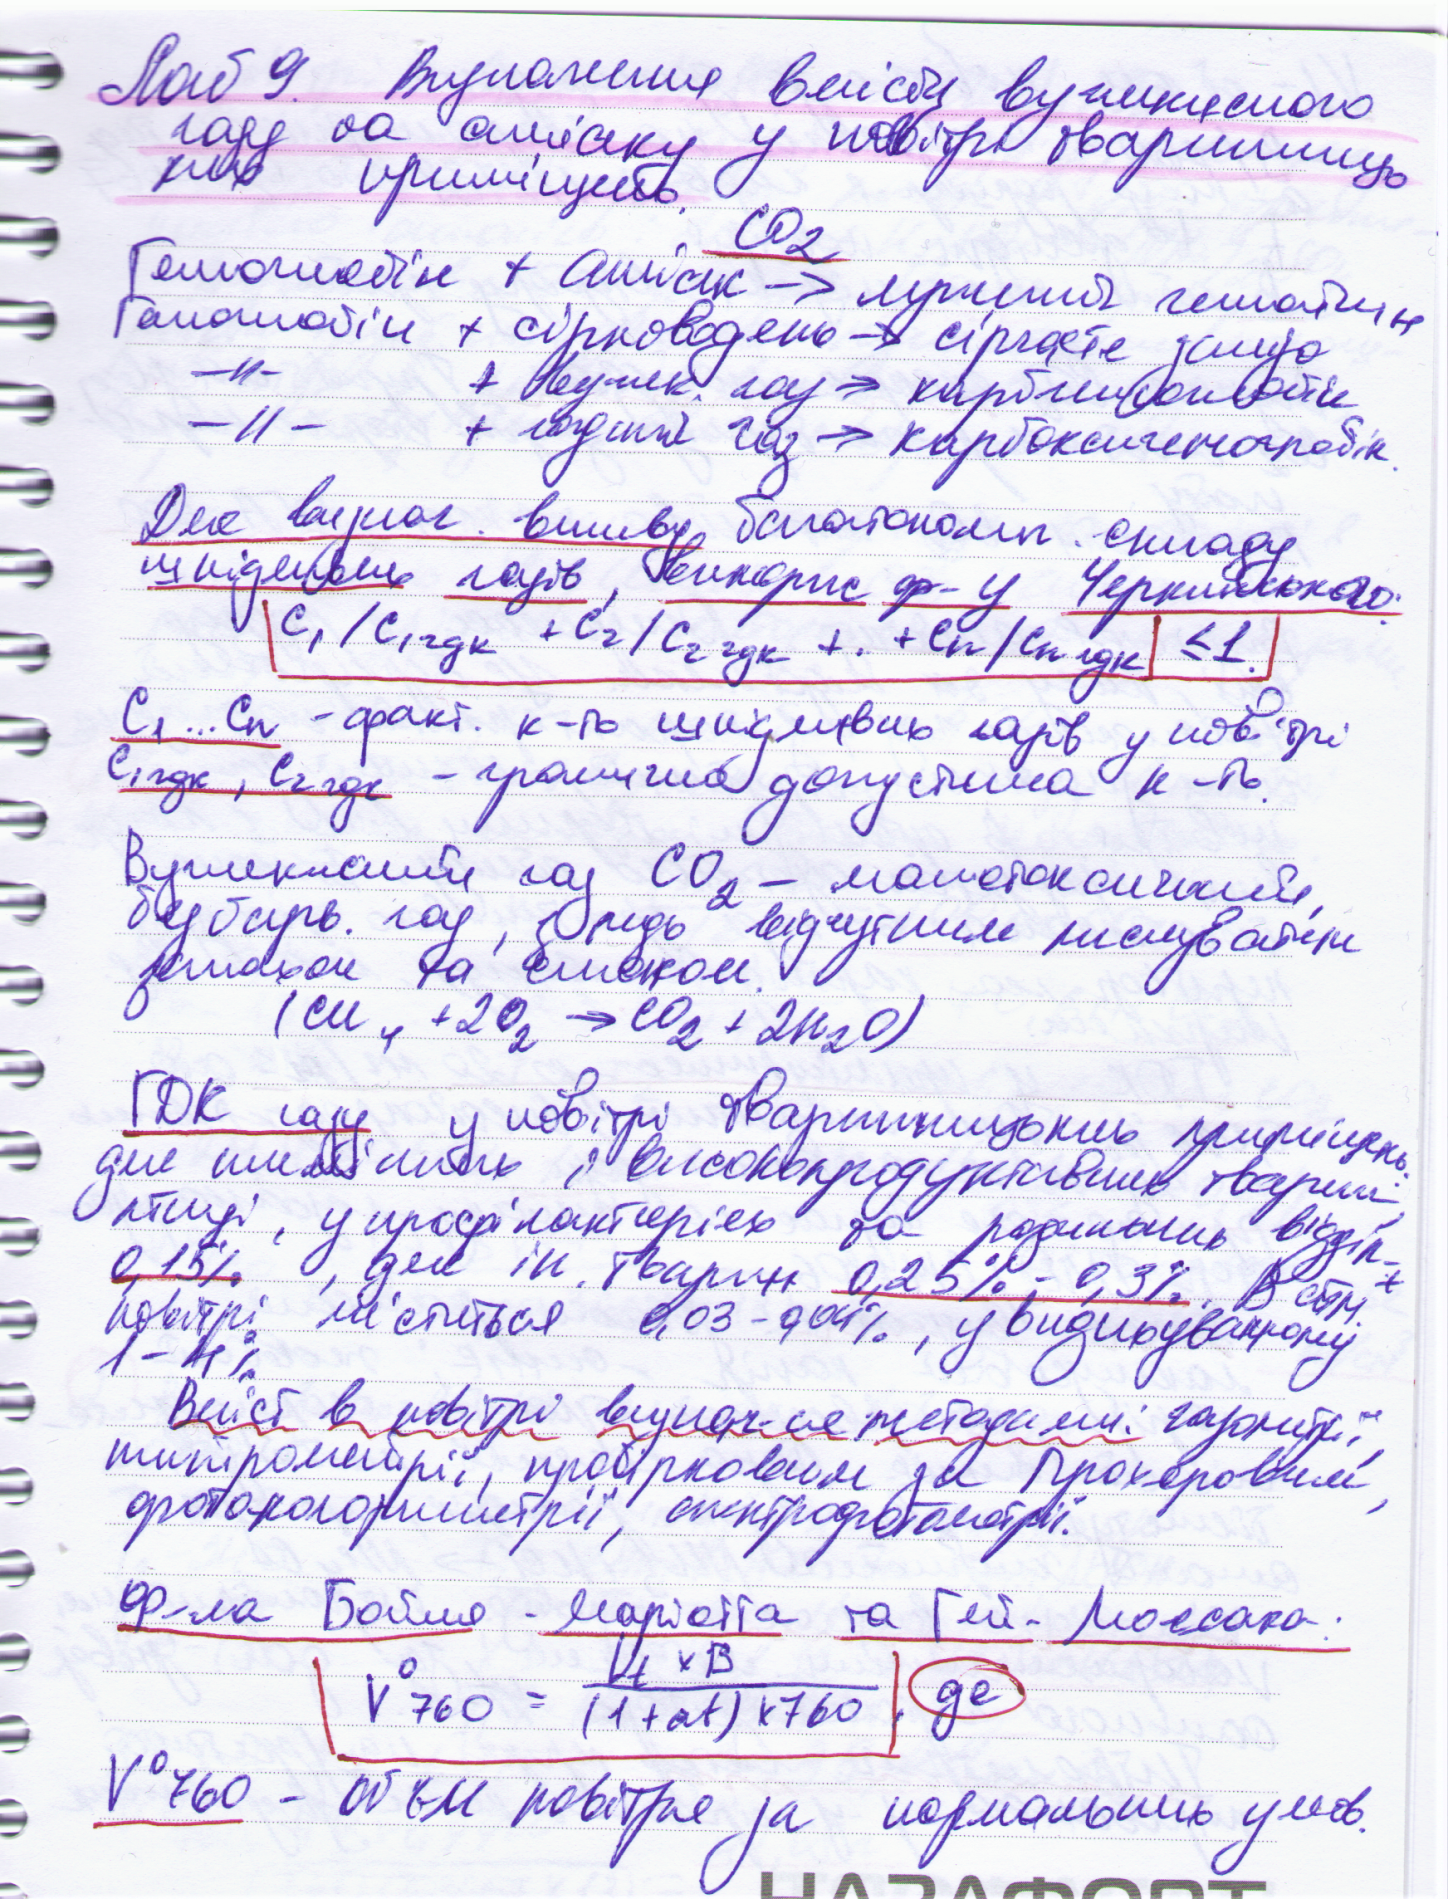 Лаб 9. Визначення вмісту вуглекислого
газу та аміаку у повітрі тваринниць
ких приміщень.
CO2
Гемоглобін + аміак → лужний гематин
Гемоглобін + сірководень → сірчисте залізо
–//– + вуглек. газ → карбгемоглобін
–//– + чадний газ → карбоксигемоглобін.
Для визнач. впливу багатокомп. складу
шкідливих газів, викорис ф-у Черкинського:
C1/C1гдк + C2/C2гдк + . + Cn/Cnгдк ≤1.
C1...Cn – факт. к-ть шкідливих газів у повітрі
C1гдк, C2гдк – гранично допустима к-ть.
Вуглекислий газ CO2 – малотоксичний,
безбарв. газ, з ледь відчутним кислуватим
запахом та смаком.
(CH4 + 2O2 → CO2 + 2H2O)
ГДК газу у повітрі тваринницьких приміщень:
для племінних і високопродуктивних тварин,
птиці, у профілакторіях та родильних відділ-
0,15%, для ін. тварин 0,25% – 0,3%. В атм.
повітрі міститься 0,03 – 0,04%, у видихуваному
1 – 4%
Вміст в повітрі визнач-ся методами: газометрії,
титрометрії, пробірковим за Прохоровим,
фотоколориметрії, спектрофотометрії.
Ф-ла Бойля - Маріотта та Гей - Люссака:
V°760 = Vt × B / (1+αt) × 760, де
V°760 – об'єм повітря за нормальних умов.
НАЗАФОРТ